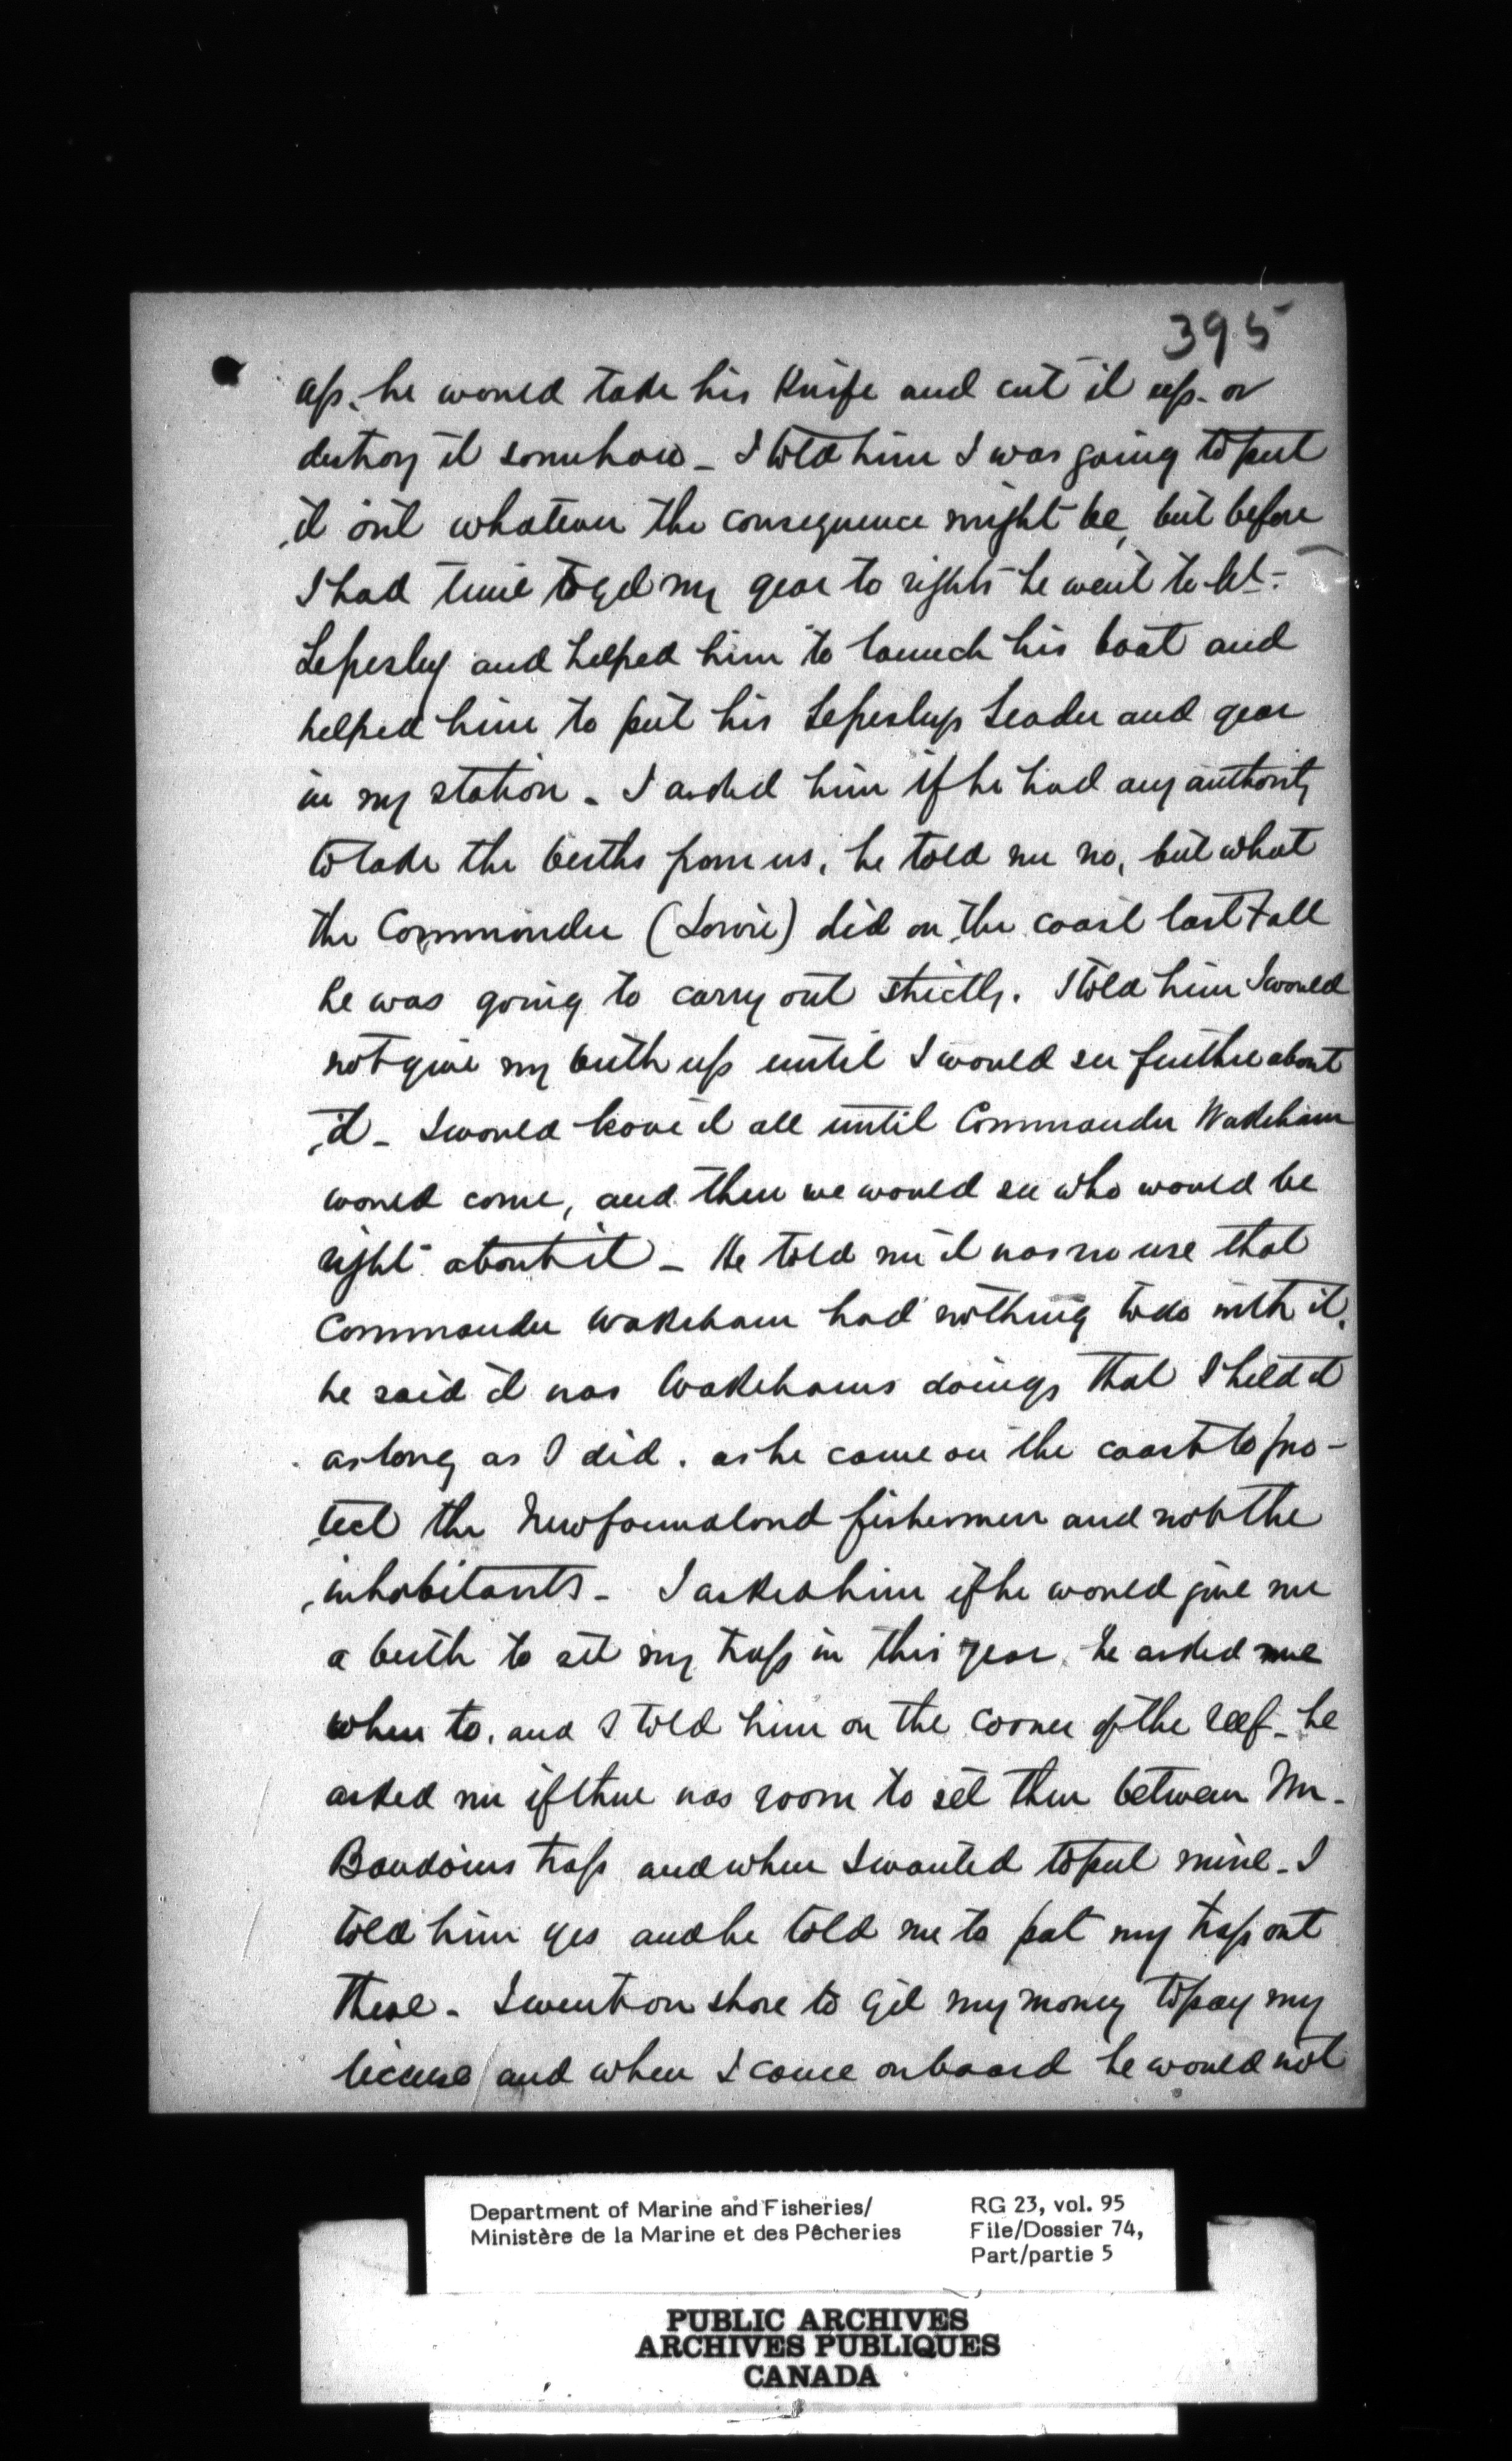 395
up. he would take his Knife and cut it up. or
destroy it somehow - I told him I was going to put
it out whatever the consequence might be, but before
I had time to get my gear to rights he went to
and helped him to launch his boat and
helped him to put his Leader and gear
in my station - I asked him if he had any authority
to take the berths from us, he told me no, but what
the Commander (Lowrie) did on the coast last Fall
he was going to carry out strictly. I told him I would
not give my berth up until I would see further about
it - I would leave it all until Commander Wakeham
would come, and then we would see who would be
right about it - He told me it was no use that
Commander Wakeham had nothing to do with it,
he said it was Wakehams doings that I held it
as long as I did. as he came on the coast to pro-
tect the Newfoundland fishermen and not the
inhabitants - I asked him if he would give me
a berth to set my trap in this year. he asked me
where to, and I told him on the corner of the reef - he
asked me if there was room to set there between Mr.
Baudoins trap and where I wanted to put mine - I
told him yes and he told me to put my trap out
there - I went on shore to get my money to pay my
license and when I came on board he would not
Department of Marine and Fisheries/
Ministère de la Marine et des Pêcheries
RG 23, vol. 95
File/Dossier 74,
Part/partie 5
PUBLIC ARCHIVES
ARCHIVES PUBLIQUES
CANADA